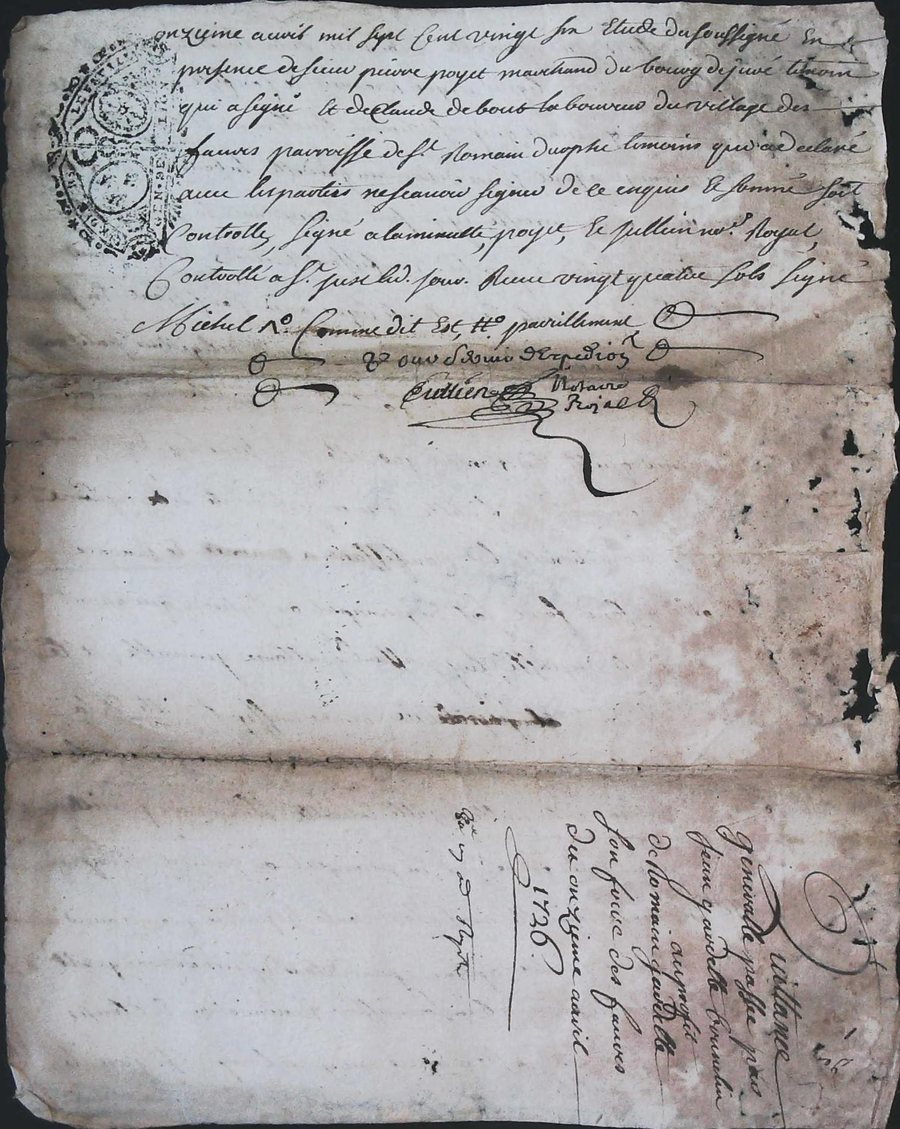 onzieme avril mil sept Cent vingt six Etude du soussigné En
presence de sieur pierre poyet marchand du bourg de juré temoin
qui a signé Et de Claude debout laboureur du village des
fauvts parroisse de St. Romain temoins qui a declaré
avec les parties ne scavoir signer de ce enquis Et sommé soit
Controllé, signé a la minutte, poyet, Et jullien nore. Royal,
Controllé a St. just led. jour. Receu vingt quatre sols signé
Michel No. Comme dit Est, pareillement,
d'Expedion
Jullien Notaire
Royal
Quittance
generalle passée par
jean gardette bouschu
au profit
de Romain gardette
son frere des fauves
du onzieme avril
1726.